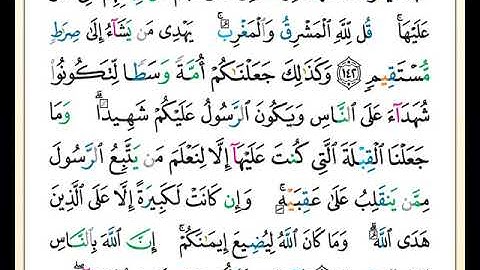 عَلَيْهَاۚ قُل لِّلَّهِ ٱلْمَشْرِقُ وَٱلْمَغْرِبُۚ يَهْدِى مَن يَشَآءُ إِلَىٰ صِرَٰطٍ
مُّسْتَقِيمٍ ١٤٢ وَكَذَٰلِكَ جَعَلْنَٰكُمْ أُمَّةً وَسَطًا لِّتَكُونُوا۟
شُهَدَآءَ عَلَى ٱلنَّاسِ وَيَكُونَ ٱلرَّسُولُ عَلَيْكُمْ شَهِيدًاۗ وَمَا
جَعَلْنَا ٱلْقِبْلَةَ ٱلَّتِى كُنتَ عَلَيْهَآ إِلَّا لِنَعْلَمَ مَن يَتَّبِعُ ٱلرَّسُولَ
مِمَّن يَنقَلِبُ عَلَىٰ عَقِبَيْهِۚ وَإِن كَانَتْ لَكَبِيرَةً إِلَّا عَلَى ٱلَّذِينَ
هَدَى ٱللَّهُۗ وَمَا كَانَ ٱللَّهُ لِيُضِيعَ إِيمَٰنَكُمْۚ إِنَّ ٱللَّهَ بِٱلنَّاسِ